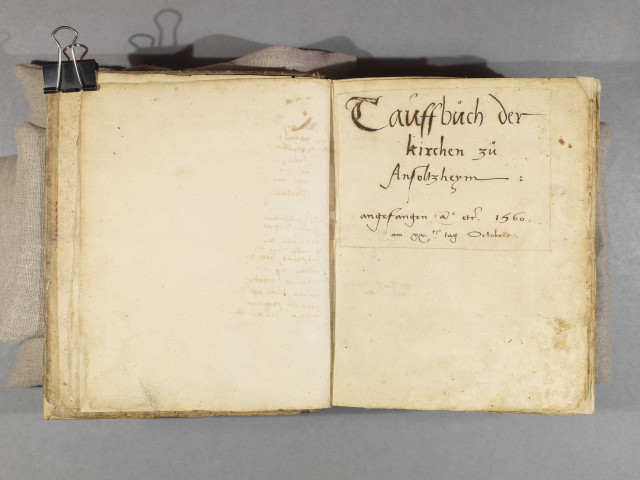 Tauffbůch der
kirchen zů
Ansoltzheym :
angefangen a° etc. 1560.
am xx. tag Octobris.